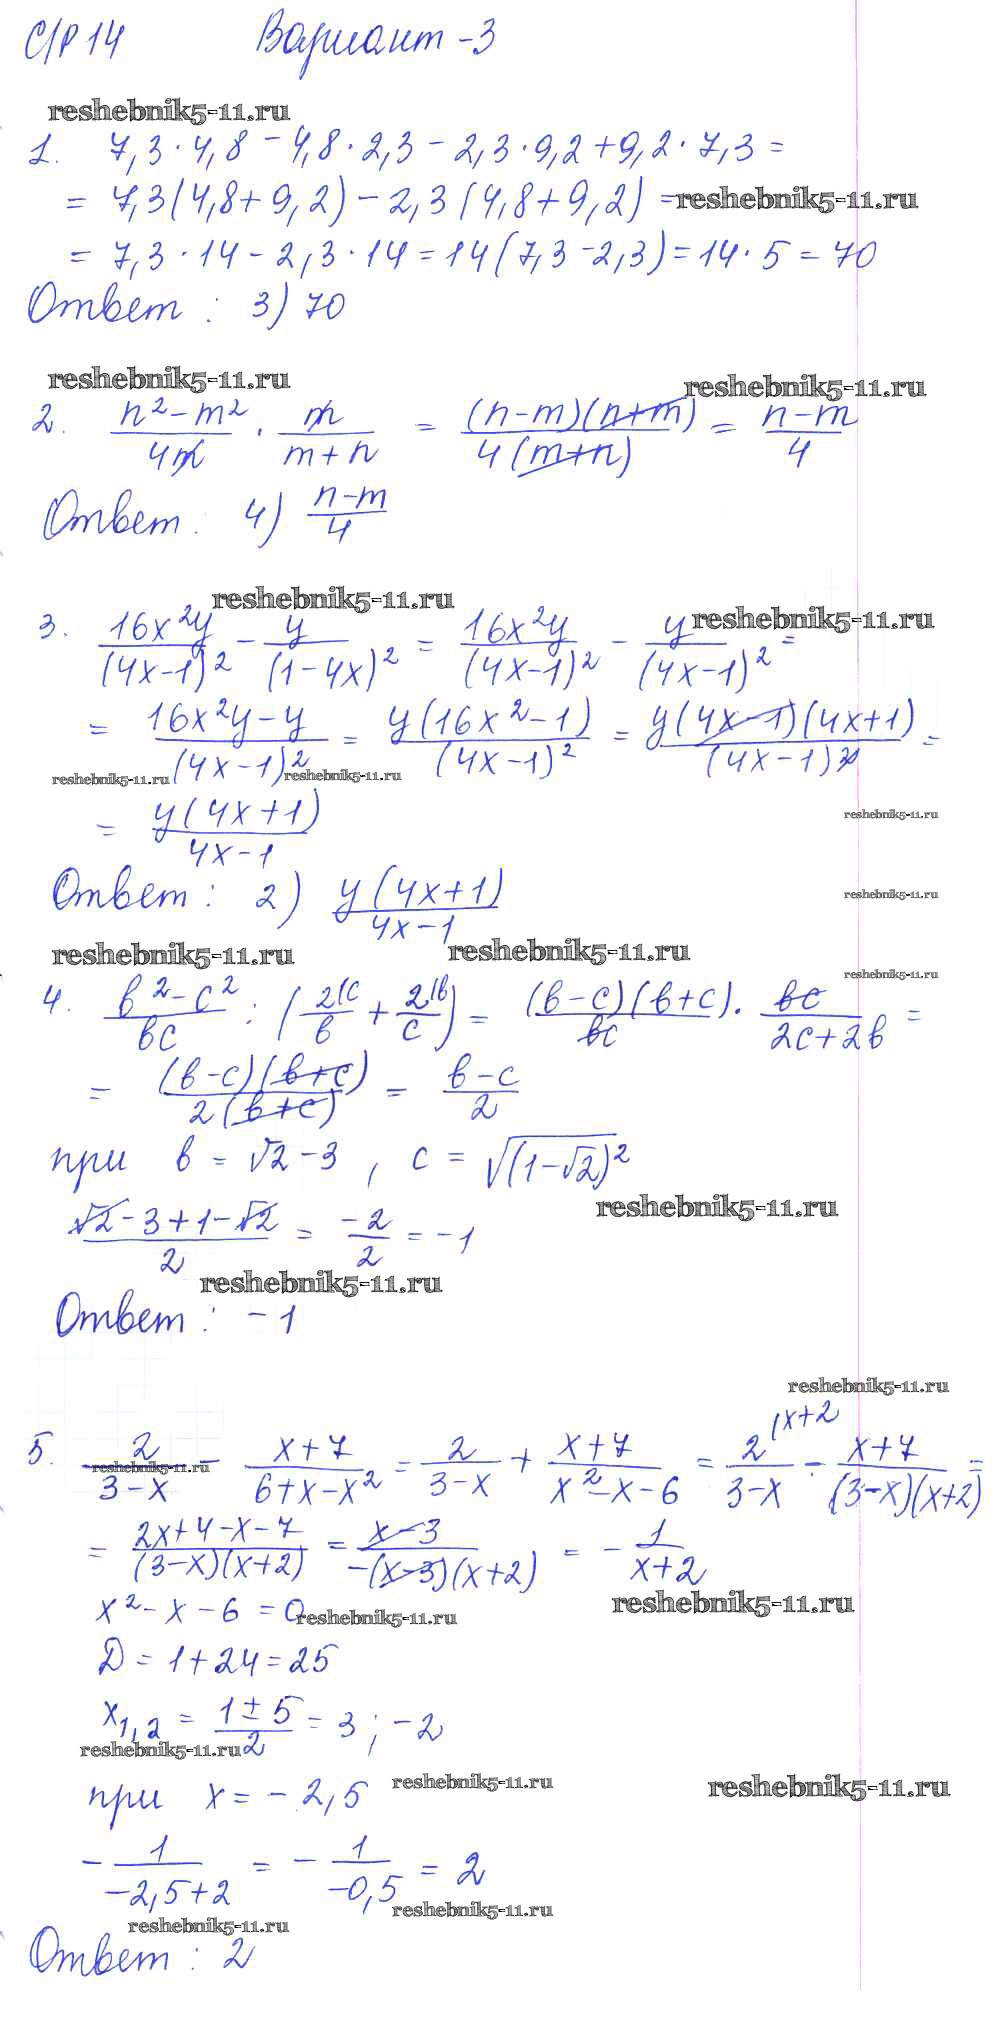 С/Р 14 Вариант -3
reshebnik5-11.ru
1. 7,3 · 4,8 - 4,8 · 2,3 - 2,3 · 9,2 + 9,2 · 7,3 =
= 7,3(4,8 + 9,2) - 2,3(4,8 + 9,2) = reshebnik5-11.ru
= 7,3 · 14 - 2,3 · 14 = 14(7,3 - 2,3) = 14 · 5 = 70
Ответ : 3) 70
reshebnik5-11.ru reshebnik5-11.ru
2. (n² - m²)/(4m) · m/(m+n) = (n-m)(n+m)/(4(m+n)) = (n-m)/4
Ответ : 4) (n-m)/4
reshebnik5-11.ru reshebnik5-11.ru
3. 16x²y/(4x-1)² - y/(1-4x)² = 16x²y/(4x-1)² - y/(4x-1)² =
= (16x²y - y)/(4x-1)² = y(16x²-1)/(4x-1)² = y(4x-1)(4x+1)/(4x-1)² =
reshebnik5-11.ru reshebnik5-11.ru
reshebnik5-11.ru
= y(4x+1)/(4x-1)
Ответ : 2) y(4x+1)/(4x-1)
reshebnik5-11.ru
reshebnik5-11.ru reshebnik5-11.ru
reshebnik5-11.ru
4. (в²-c²)/(вc) : (2/в (c + 2/c (в) = (в-c)(в+c)/(вc) · вc/(2c+2в) =
= (в-c)(в+c)/(2(в+c)) = (в-c)/2
при в = √2 - 3 , c = √(1-√2)²
reshebnik5-11.ru
(√2 - 3 + 1 - √2)/2 = -2/2 = -1
reshebnik5-11.ru
Ответ : -1
reshebnik5-11.ru
5. 2/(3-x) - (x+7)/(6+x-x²) = 2/(3-x) + (x+7)/(x²-x-6) = 2/(3-x) (x+2 - (x+7)/((3-x)(x+2)) =
reshebnik5-11.ru
= (2x+4-x-7)/((3-x)(x+2)) = (x-3)/(-(x-3)(x+2)) = - 1/(x+2)
x² - x - 6 = 0 reshebnik5-11.ru reshebnik5-11.ru
D = 1 + 24 = 25
x1,2 = (1 ± 5)/2 = 3 ; -2
reshebnik5-11.ru
при x = -2,5 reshebnik5-11.ru reshebnik5-11.ru
- 1/(-2,5+2) = - 1/(-0,5) = 2
reshebnik5-11.ru
reshebnik5-11.ru
Ответ : 2